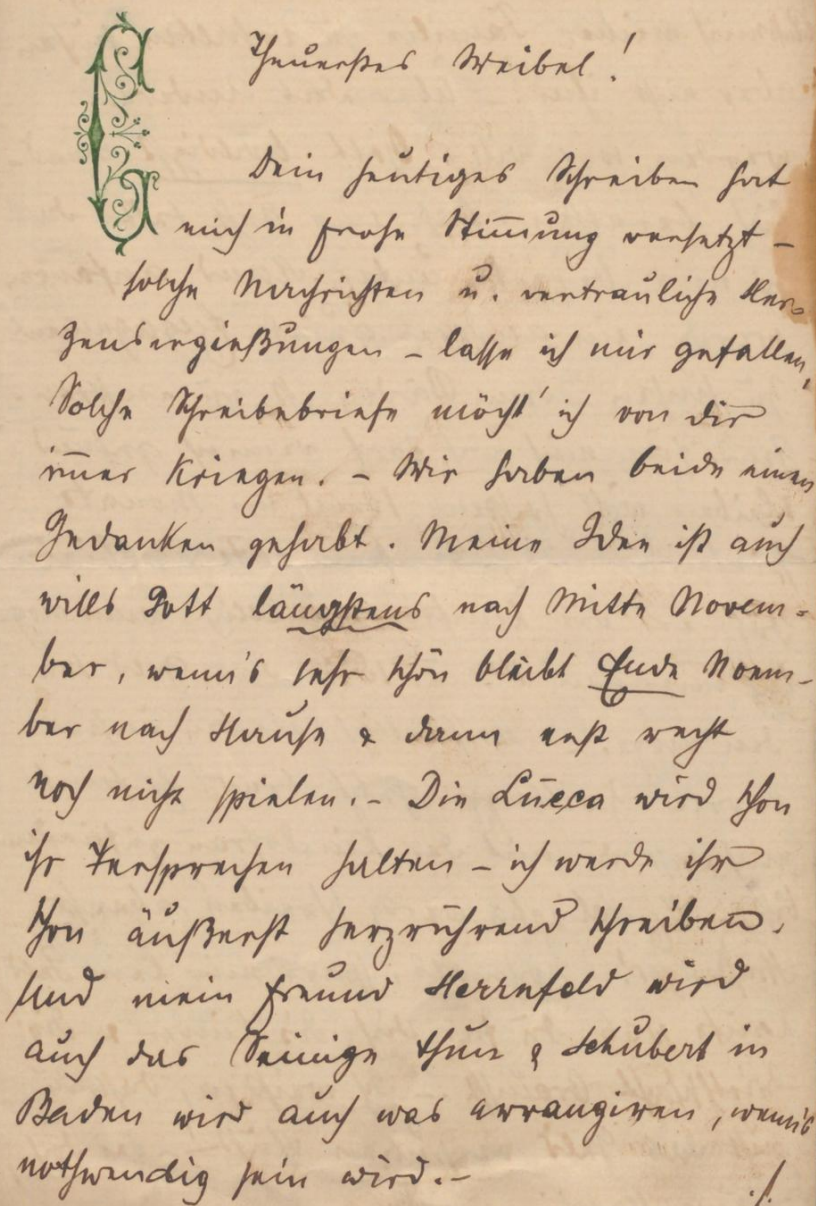 Theuerstes Weibel!
Dein heutiges Schreiben hat
mich in frohe Stimmung versetzt –
solche Nachrichten u. vertrauliche Her-
zensergießungen – lasse ich mir gefallen,
Solche Schreibebriefe möcht' ich von dir
im̅er kriegen. – Wir haben beide einen
Gedanken gehabt. Meine Idee ist auch
wills Gott längstens nach Mitte Novem-
ber, wenn's sehr schön bleibt Ende Noem-
ber nach Hause & dann erst recht
noch nicht spielen. – Die Lucca wird schon
ihr Versprechen halten – ich werde ihr
schon äußerst herzrührend schreiben.
Und mein Freund Herrnfeld wird
auch das Seinige thun & Schubert in
Baden wird auch was arrangiren, wenn's
nothwendig sein wird. –
./.